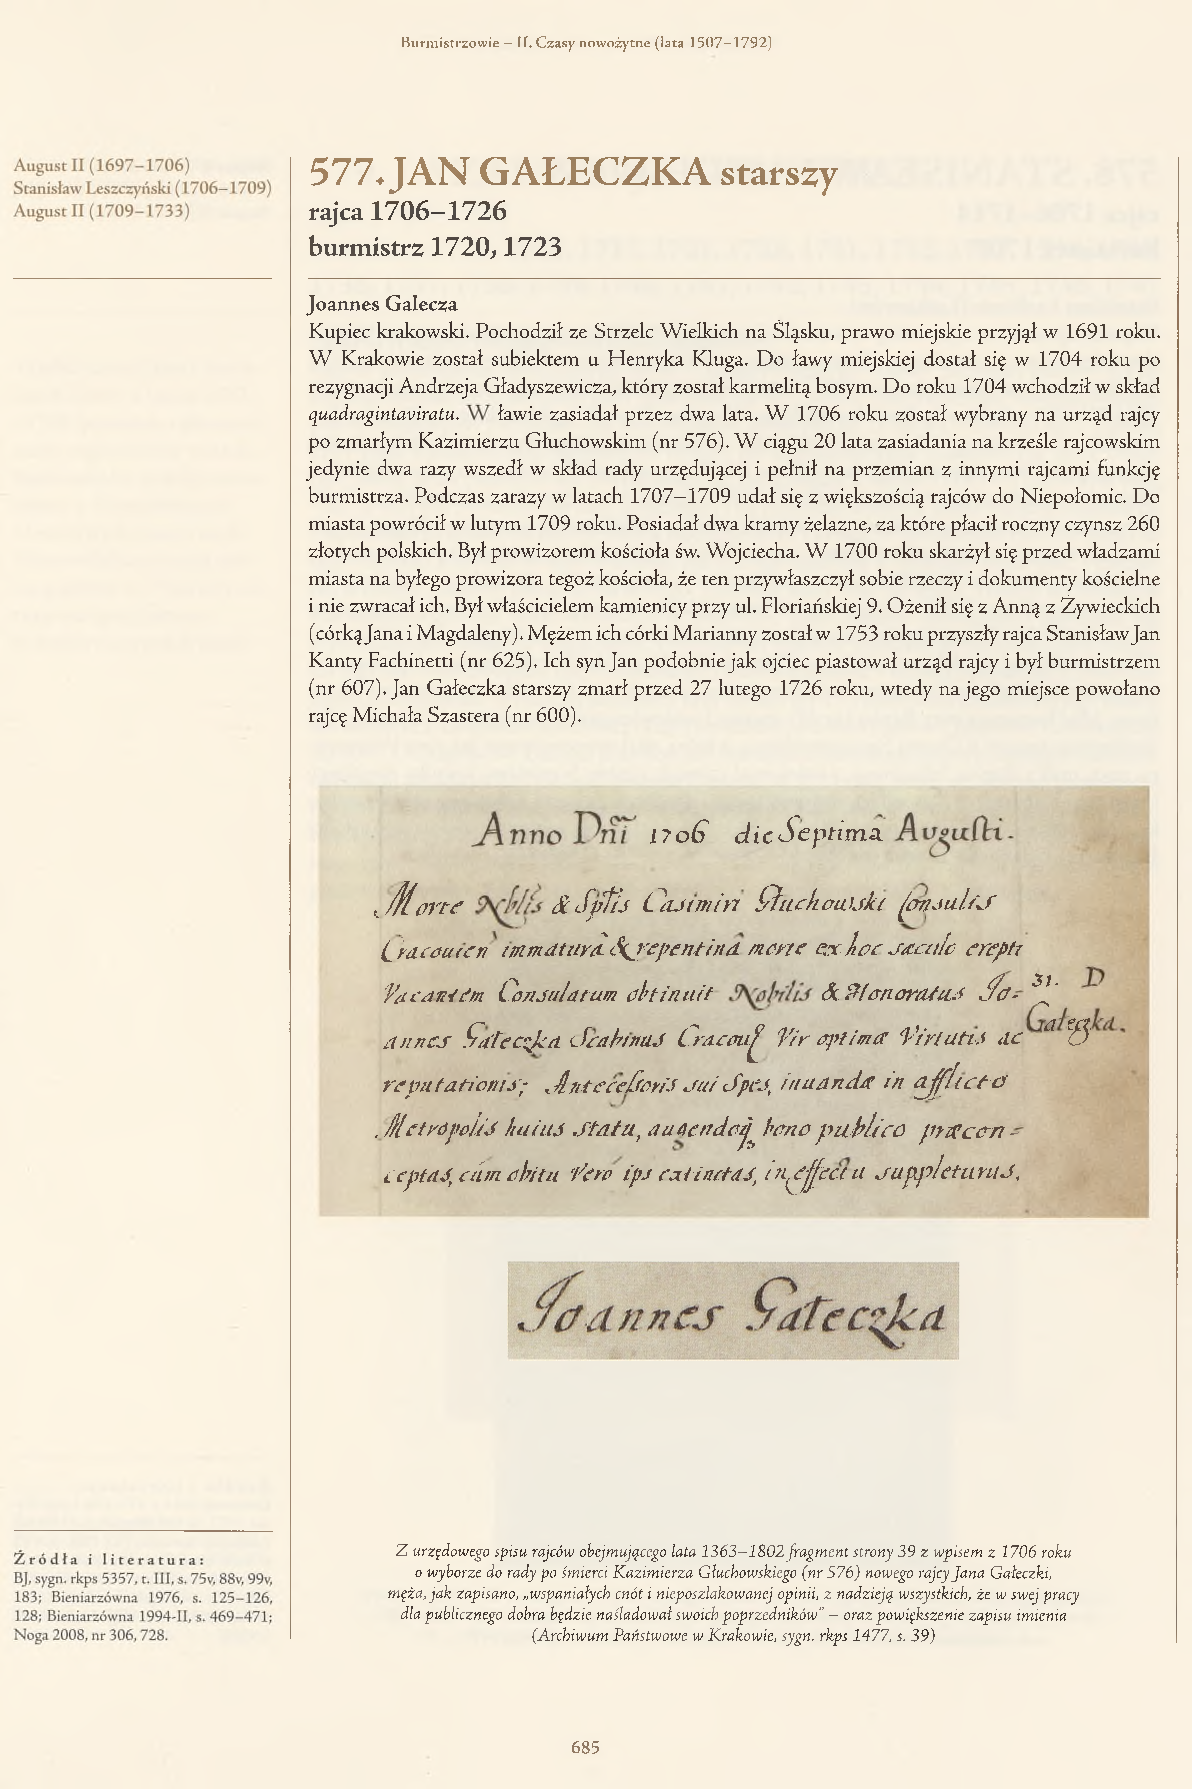 Burmistrzowie – II. Czasy nowożytne (lata 1507–1792)
August II (1697–1706)
Stanisław Leszczyński (1706–1709)
August II (1709–1733)
577. JAN GAŁECZKA starszy
rajca 1706–1726
burmistrz 1720, 1723
Joannes Galecza
Kupiec krakowski. Pochodził ze Strzelc Wielkich na Śląsku, prawo miejskie przyjął w 1691 roku.
W Krakowie został subiektem u Henryka Kluga. Do ławy miejskiej dostał się w 1704 roku po
rezygnacji Andrzeja Gładyszewicza, który został karmelitą bosym. Do roku 1704 wchodził w skład
quadragintaviratu. W ławie zasiadał przez dwa lata. W 1706 roku został wybrany na urząd rajcy
po zmarłym Kazimierzu Głuchowskim (nr 576). W ciągu 20 lata zasiadania na krześle rajcowskim
jedynie dwa razy wszedł w skład rady urzędującej i pełnił na przemian z innymi rajcami funkcję
burmistrza. Podczas zarazy w latach 1707–1709 udał się z większością rajców do Niepołomic. Do
miasta powrócił w lutym 1709 roku. Posiadał dwa kramy żelazne, za które płacił roczny czynsz 260
złotych polskich. Był prowizorem kościoła św. Wojciecha. W 1700 roku skarżył się przed władzami
miasta na byłego prowizora tegoż kościoła, że ten przywłaszczył sobie rzeczy i dokumenty kościelne
i nie zwracał ich. Był właścicielem kamienicy przy ul. Floriańskiej 9. Ożenił się z Anną z Żywieckich
(córką Jana i Magdaleny). Mężem ich córki Marianny został w 1753 roku przyszły rajca Stanisław Jan
Kanty Fachinetti (nr 625). Ich syn Jan podobnie jak ojciec piastował urząd rajcy i był burmistrzem
(nr 607). Jan Gałeczka starszy zmarł przed 27 lutego 1726 roku, wtedy na jego miejsce powołano
rajcę Michała Szastera (nr 600).
Anno Dñi 1706 die Septimâ Augusti.
Morte Nblis & Sptis Casimiri Głuchowski Consulis
Cracouien immaturâ & repentinâ morte ex hoc sæculo erepti
Vacantem Consulatum obtinuit Nobilis & Honoratus Jo=
annes Gałeczka Scabinus Cracou Vir optimæ Virtutis ac
31. D
Gałeczka.
reputationis; Antecessoris sui Spes, iuuandæ in afflicto
Metropolis huius statu, augendoq bono publico præcon=
ceptas, cum obitu Vero ips extinctas, in effectu suppleturus.
Joannes Gałeczka
Źródła i literatura:
BJ, sygn. rkps 5357, t. III, s. 75v, 88v, 99v,
183; Bieniarzówna 1976, s. 125–126,
128; Bieniarzówna 1994-II, s. 469–471;
Noga 2008, nr 306, 728.
Z urzędowego spisu rajców obejmującego lata 1363–1802 fragment strony 39 z wpisem z 1706 roku
o wyborze do rady po śmierci Kazimierza Głuchowskiego (nr 576) nowego rajcy Jana Gałeczki,
męża, jak zapisano, „wspaniałych cnót i nieposzlakowanej opinii, z nadzieją wszystkich, że w swej pracy
dla publicznego dobra będzie naśladował swoich poprzedników” – oraz powiększenie zapisu imienia
(Archiwum Państwowe w Krakowie, sygn. rkps 1477, s. 39)
685